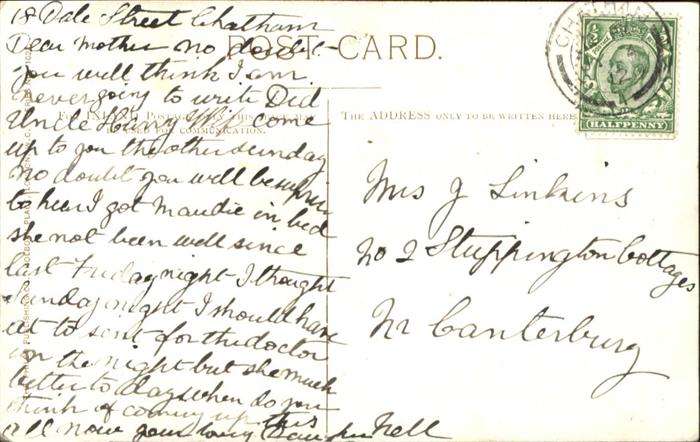 18 Dale Street Chatham
Dear Mother no doubt
you will think I am
never going to write Did
Uncle Harry come
up to you the other sunday
no doubt you will be suprise
to hear I got Maudie in bed
she not been well since
last Friday night I thought
sunday night I should have
at to sent for the doctor
in the night but she much
better to day when do you
think of coming up this
all now your loving Daughter Nell
POST CARD.
THE ADDRESS ONLY TO BE WRITTEN HERE
FOR COMMUNICATION.
CHATHAM
12
HALFPENNY
Mrs J Linkins
No 2 Stuppington Cottages
Nr Canterbury